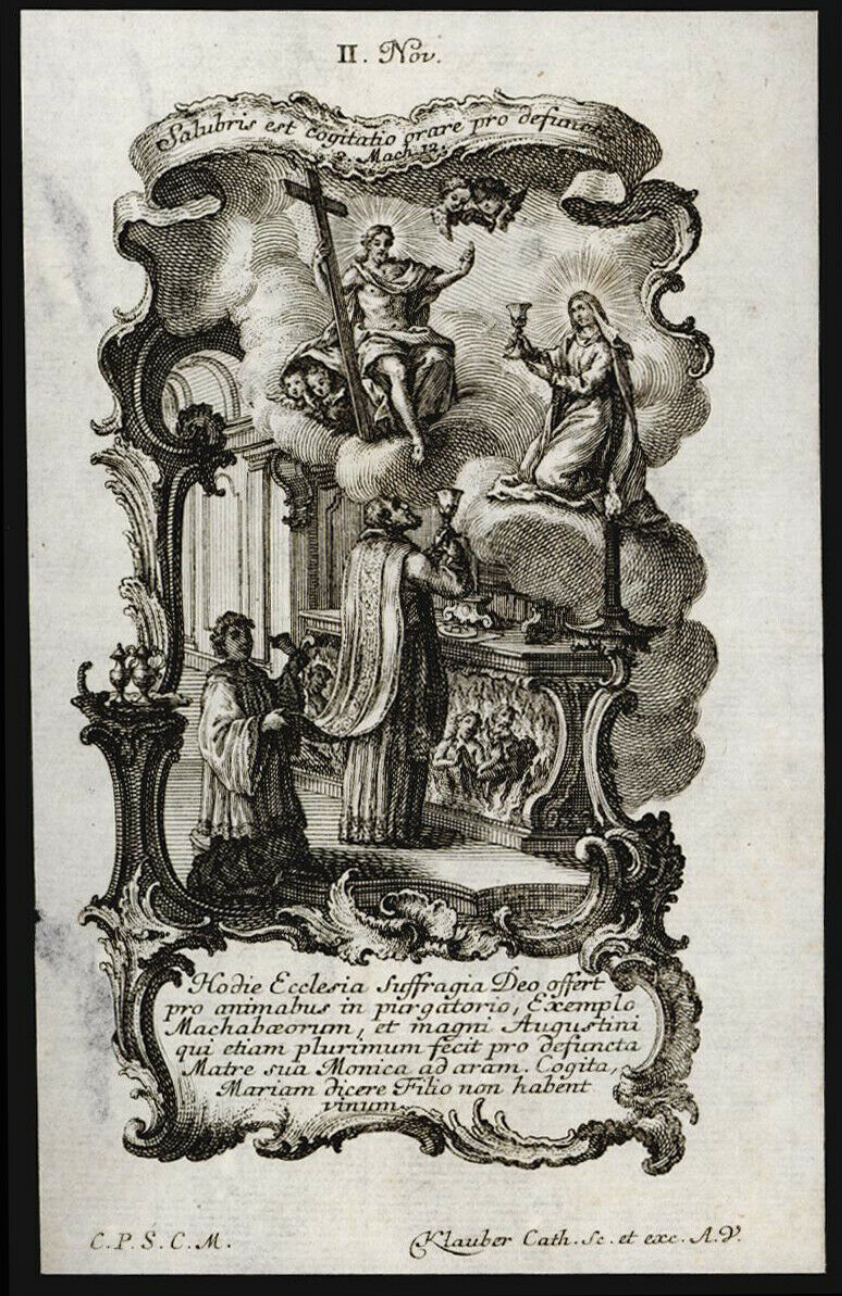 II. Nov.
Salubris est cogitatio orare pro defunctis
2. Mach. 12.
Hodie Ecclesia suffragia Deo offert
pro animabus in purgatorio, Exemplo
Machabæorum, et magni Augustini
qui etiam plurimum fecit pro defuncta
Matre sua Monica ad aram. Cogita,
Mariam dicere Filio non habent
vinum.
C. P. S. C. M.
Klauber Cath. Sc. et exc. A. V.